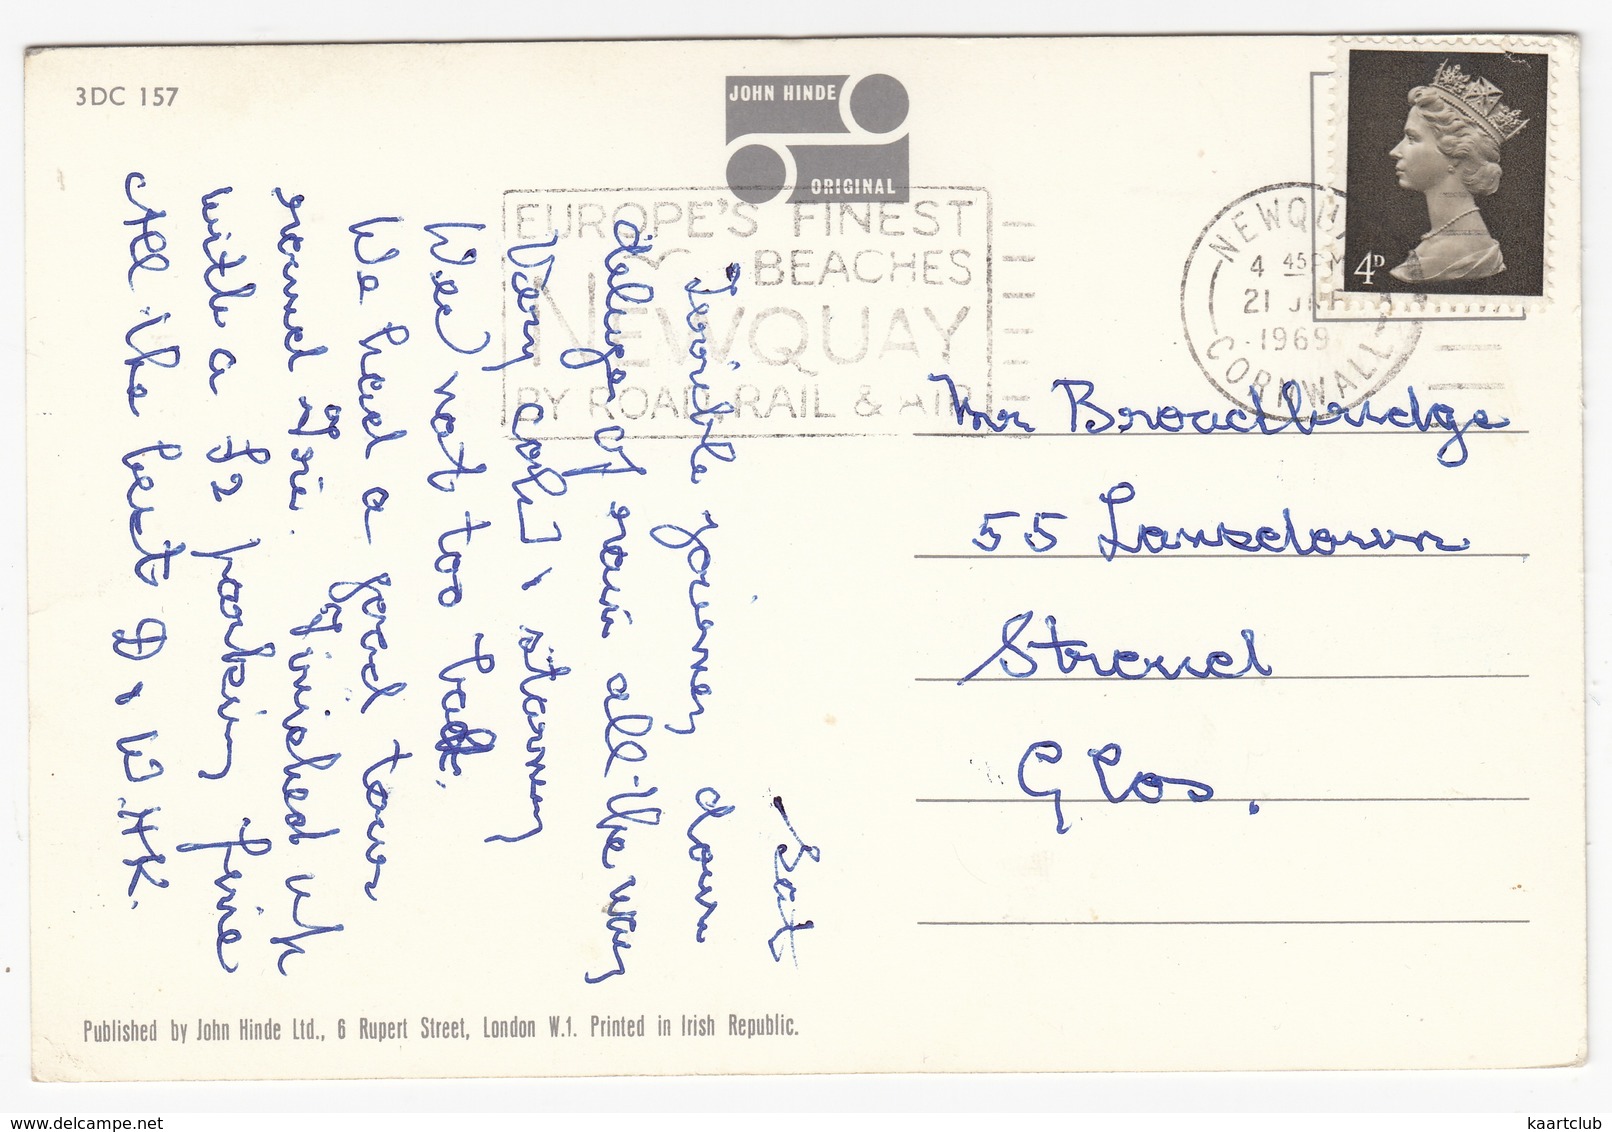 3DC 157
JOHN HINDE
ORIGINAL
EUROPE'S FINEST
BEACHES
NEWQUAY
BY ROAD, RAIL & AIR
NEWQUAY
4 45 PM
21 JAN
1969
CORNWALL
4D
Sat
Terrible journey down
deluge of rain all the way
Very cold & stormy
Wed not too bad.
We had a good tour
round I Tri. Finished up
with a £2 parking fine
All the best D & W.H.K.
Mr Broadbridge
55 Lansdown
Stroud
Glos.
Published by John Hinde Ltd., 6 Rupert Street, London W.1. Printed in Irish Republic.
kaartclub